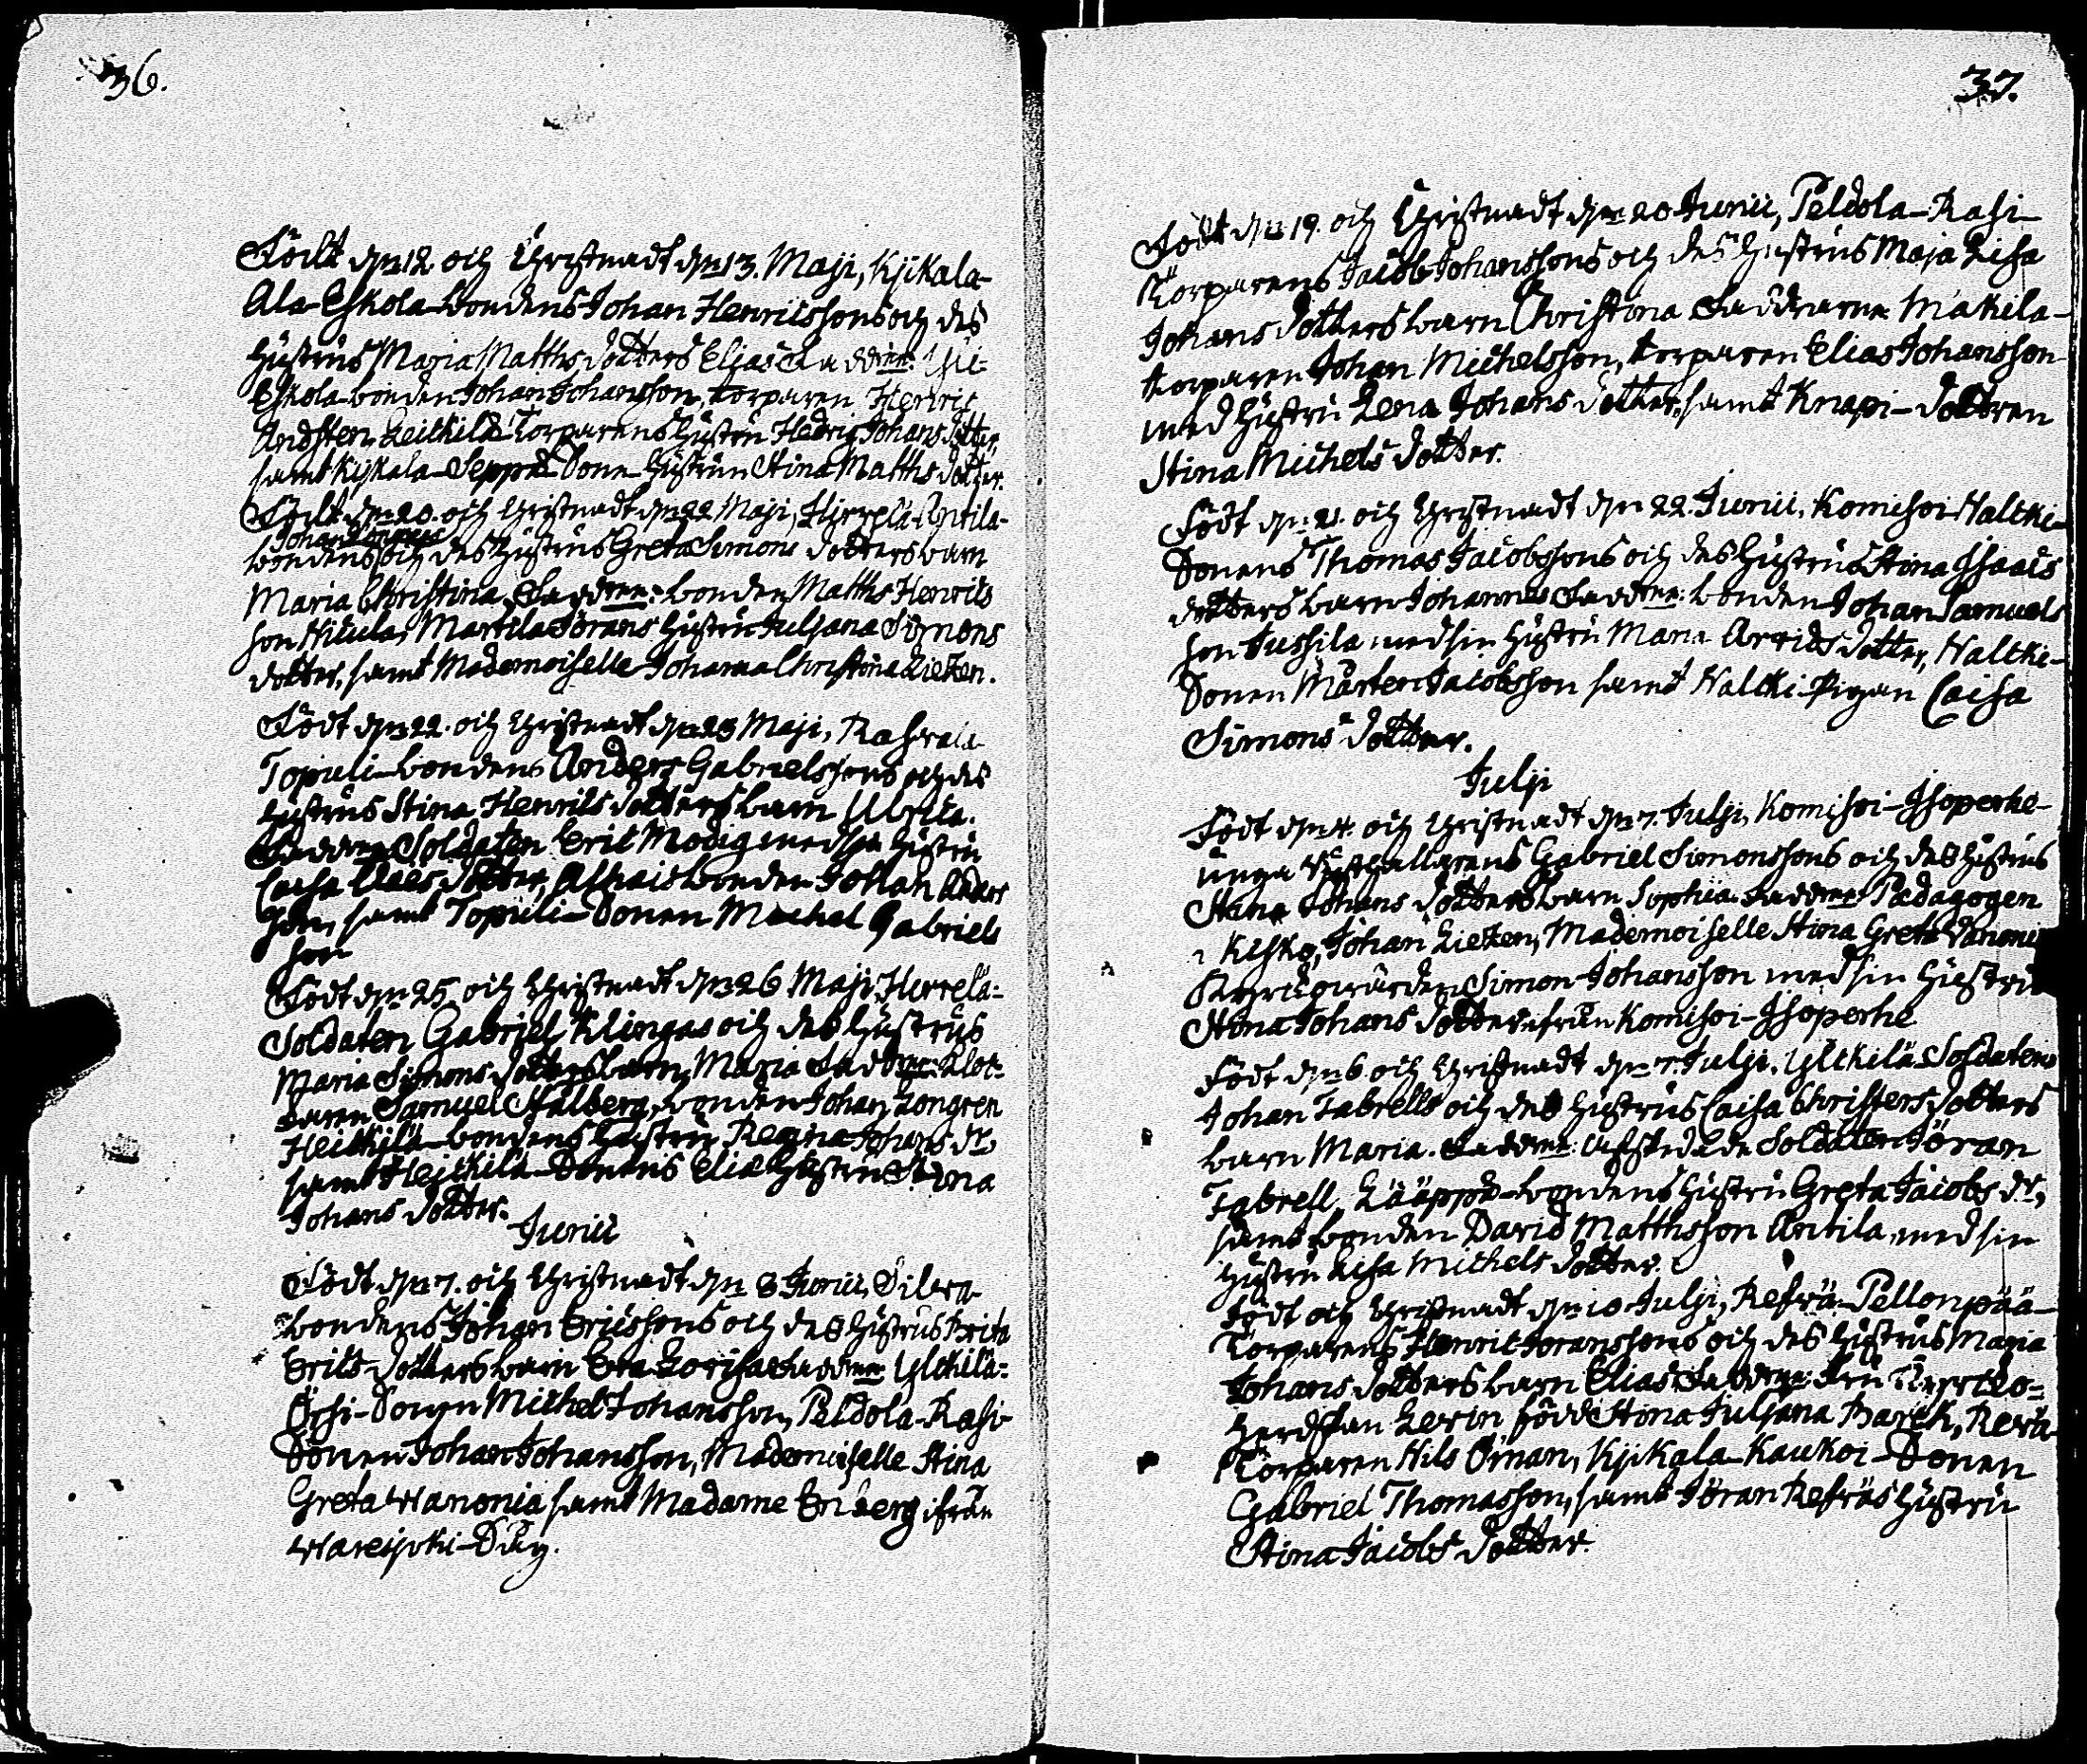 36.
Födt d 12. och Christnadt d 13. Maji, Kjikala-
Ala-Eskola-bondens Johan Henricssons och des
hustrus Maria Matths dotters Elias Faddrar:
Eskola-bonden Johan Johansson, torparen Henric
Andsten, Heickilä-Torparens hustru Hedvig Johans dotter,
samt Kjikala-Seppä-Sone-hustrun Stina Matths dotter.
Födt d 20. och Christnadt d 22 Maji, Antila-
Johan
bondens och des hustrus Greta Simons dotters barn
Maria Christina, Faddrar: bonden Matths Henrics
son Nicula, Martila Jörans hustru Juljana Simons
dotter, samt Mademoiselle Johanna Christina Lietzen.
Födt d 22. och Christnadt d 23 Maji,
Topuli-bondens Anders Gabrielssons och des
hustrus Stina Henrics dotters barn Ulrica.
Faddrar Soldaten Eric Modig med sin hustru
Caisa Claes dotter, bonden Johan Anders
son, samt Topuli-Sonen Michel Gabriels
son
Födt d 25. och Christnadt d 26 Maji, Herrelä-
Soldaten Gabriel Klingas och des hustrus
Maria Simons dotters barn, Maria Faddrar: Kloc-
karen Samuel Stålberg, bonden Johan Longren
Heickilä-bondens hustru Regina Johans dr,
samt Hejckilä-Sonens Eliæ hustru Stina
Johans dotter.
Junii
Födt d 7. och Christnadt d 8 Junii,
bondens Johan Ericssons och des hustrus Brita
Erics dotters barn Eva Lovisa Faddrar Ylckilä-
Örsi-Sonen Michel Johansson, Peldola-Rasi-
Sonen Johan Johansson, Mademoiselle Stina
Greta Wanonia samt Madame Enberg ifrån
Warejoki-By.
37.
Födt d 19. och Christnadt d 20 Junii, Peldola-Rasi-
Torparens Jacob Johanssons och des hustrus Maja Lisa
Johans dotters barn Christina Faddrarne Makila-
torparen Johan Michelsson, torparen Elias Johansson
med hustru Lena Johans dotter, samt Knapi-dottren
Stina Michels dotter.
Födt d 21. och Christnadt d 22. Junii, Komisoi Haltki-
Sonens Thomas Jacobssons och des hustrus Stina Isaacs
dotters barn Johannes Faddrar: bonden Johan Samuels
son Jussila med sin hustru Maria Arvids dotter, Haltki-
Sonen Mårten Jacobsson samt Haltki-Pigan Caisa
Simons dotter.
Julji
Födt d 4. och Christnadt d 7. Julji, Komisoi-Isoperhe-
unga Rusthållarens Gabriel Simonssons och des hustrus
Stina Johans dotters barn Sophia. Faddrar Pædagogen
i Kisko, Johan Lietzen, Mademoiselle Stina Greta Vanoni
Kyrckowärden Simon Johansson med sin hustru
Stina Johans dotter ifrån Komisoi-Isoperhe
Födt d 6 och Christnadt d 7. Julji, Ylckilä Soldatens
Johan Tabrells och des hustrus Caisa Christers dotters
barn Maria. Faddrar: afskedade Soldaten Jöran
Tabrell, Lääppä-bondens hustru Greta Jacobs dr,
samt bonden David Matthsson Antila, med sin
hustru Lisa Michels dotter.
Födt och Christnadt d 10 Julji, Refvä-Pellonpää-
Torparens Henric Joranssons och des hustrus Maria
Johans dotters barn Elias. Faddrar: Fru Kyrcko-
herdskan Levin född Stina Juljana Barck, Revä
Torparen Nils Öman, Kjikala-Kaukoi-Sonen
Gabriel Thomasson, samt Jöran Refväs hustru
Stina Jacobs dotter.